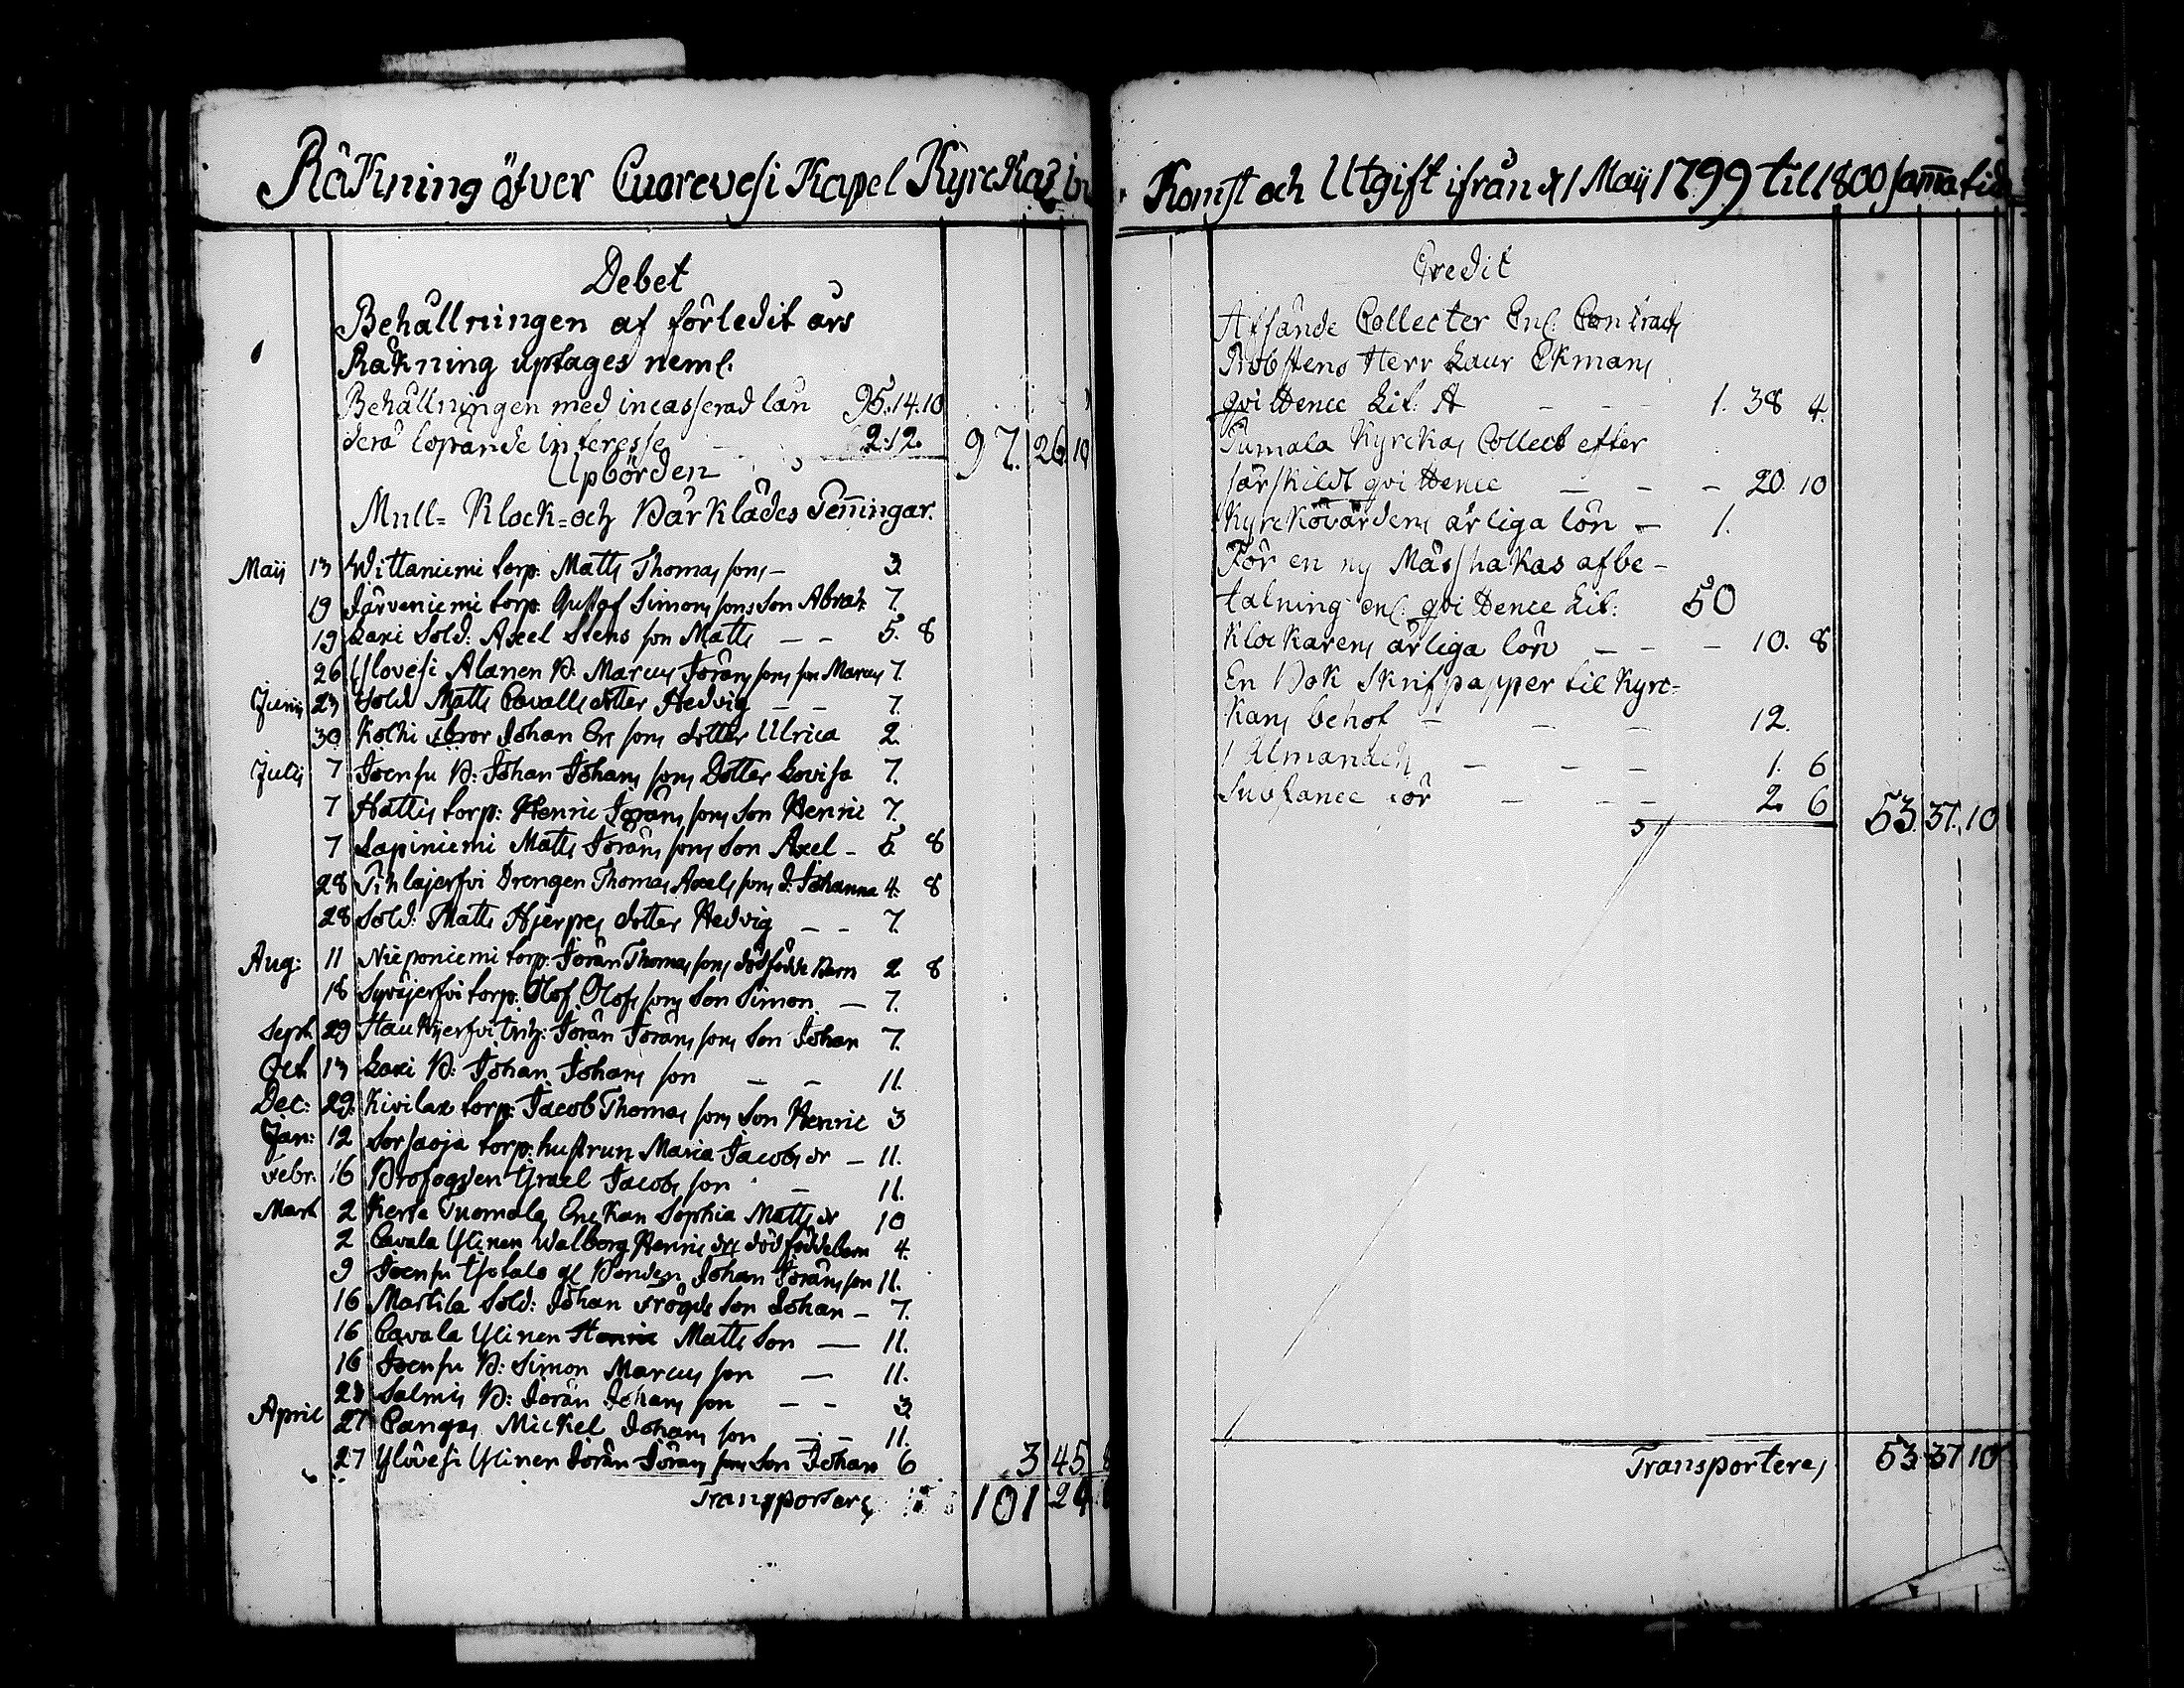 Räkning öfver Cuorevesi Kapel Kyrckas in
Debet
Behållningen af förledit års
Räkning uptages neml.
Behållningen med incasserad lån 95. 14. 10
derå löpande interesse 2. 12. 97. 26. 10
Upbörden
Mull= Klock= och Bårklädes Peñingar.
Maij 13 Wittaniemi torp: Matts Thomas sons – 3.
19 Järveniemi torp: Gustaf Simons sons Son Abrah: 7.
19 Laxi Sold: Axel Stens son Matts – – 5. 8
26 Ylovesi Alanen B: Marcus Jörans sons son Marcus 7.
Junij 23 Sold Matts Cavalls dotter Hedvig – – 7.
30 Kolhi Johan Er: sons dotter Ulrica 2.
Julij 7 Joensu B: Johan Johans sons Dotter Lovisa 7.
7 Hallis torp: Henric Jörans sons Son Henric 7.
7 Lapiniemi Matts Jörans sons Son Axel – 5. 8
28 Pihlajerfvi Drengen Thomas Axels sons d. Johanna 4. 8
28 Sold: Matts Hjerpes dotter Hedvig – – 7.
Aug: 11 Nieponiemi torp: Jöran Thomas sons dödfödde Barn 2. 8
18 Syväjerfvi torp: Olof Olofs sons Son Simon – 7.
Sept. 29 Haukijerfvi Jöran Jörans sons Son Johan 7.
Oct. 13 Laxi B: Johan Johans son – – 11.
Dec: 29. Kivilax torp: Jacob Thomas sons Son Henric 3
Jan: 12 Sorsaoja torp: hustrun Maria Jacobs dr – 11.
Febr. 16 Profogden Israel Jacobs son – 11.
Mart. 2 Kerte Tuomala Enckan Sophia Matts dr 10
2 Cavala Ylinen Walborg Henrics drs dödfödde barn 4.
9 Joensu Ysotalo gl Bonden Johan Jörans son 11.
16 Martila Sold: Johan Frögds Son Johan – 7.
16 Cavala Ylinen Henric Matts Son — 11.
16 Joensu B: Simon Marcus son — 11.
23 Salmis B: Jöran Johans son – – 3.
April 27 Cangas Mickel Johans son – – 11.
27 Ylövesi Ylinen Jöran Jörans sons Son Johan 6 3 45 8
Transporteras 101 24
Komst och Utgift ifrån d. 1 Maij 1799 til 1800 sam̄a tid
Credit
Afsände Collecter Enl: Contracts
Probstens Herr Laur Ekmans
qvittence Lit: A – – – 1. 38 4.
Tumala Kyrckas Collect efter
särskildt qvittence – – – 20. 10
Kyrckovärdens årliga lön – 1.
För en ny Mässhakas afbe-
talning enl: qvittence Lit: 50
Klockarens årliga lön – – – 10. 8
En Bok Skrifpapper til Kyrc-
kans behof – – – 12.
1 Almanach – – – 1. 6
Substance för – – – 2. 6 53. 37. 10
Transporteras 53. 37 10